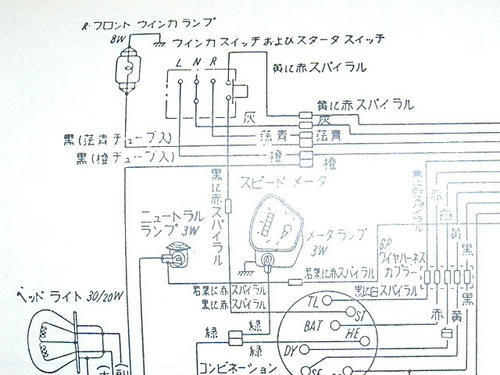 R.フロント ウインカ ランプ
8W
ウインカ スイッチおよびスタータ スイッチ
L N R
黄に赤スパイラル
黄に赤スパイラル
灰
灰
黒(萡青チューブ入)
萡青
萡青
黒(橙チューブ入)
橙
橙
黒に赤スパイラル
スピード メータ
ニュートラル
ランプ 3W
メータランプ
3W
6P
ワイヤハーネス
カプラー
赤
黄
黒
若葉に赤スパイラル
若葉に赤スパイラル
黒に赤スパイラル
黒に白スパイラル
ヘッド ライト 30/20W
緑
緑
緑
コンビネーション
TL
ST
BAT
HE
DY
赤
黄
黒